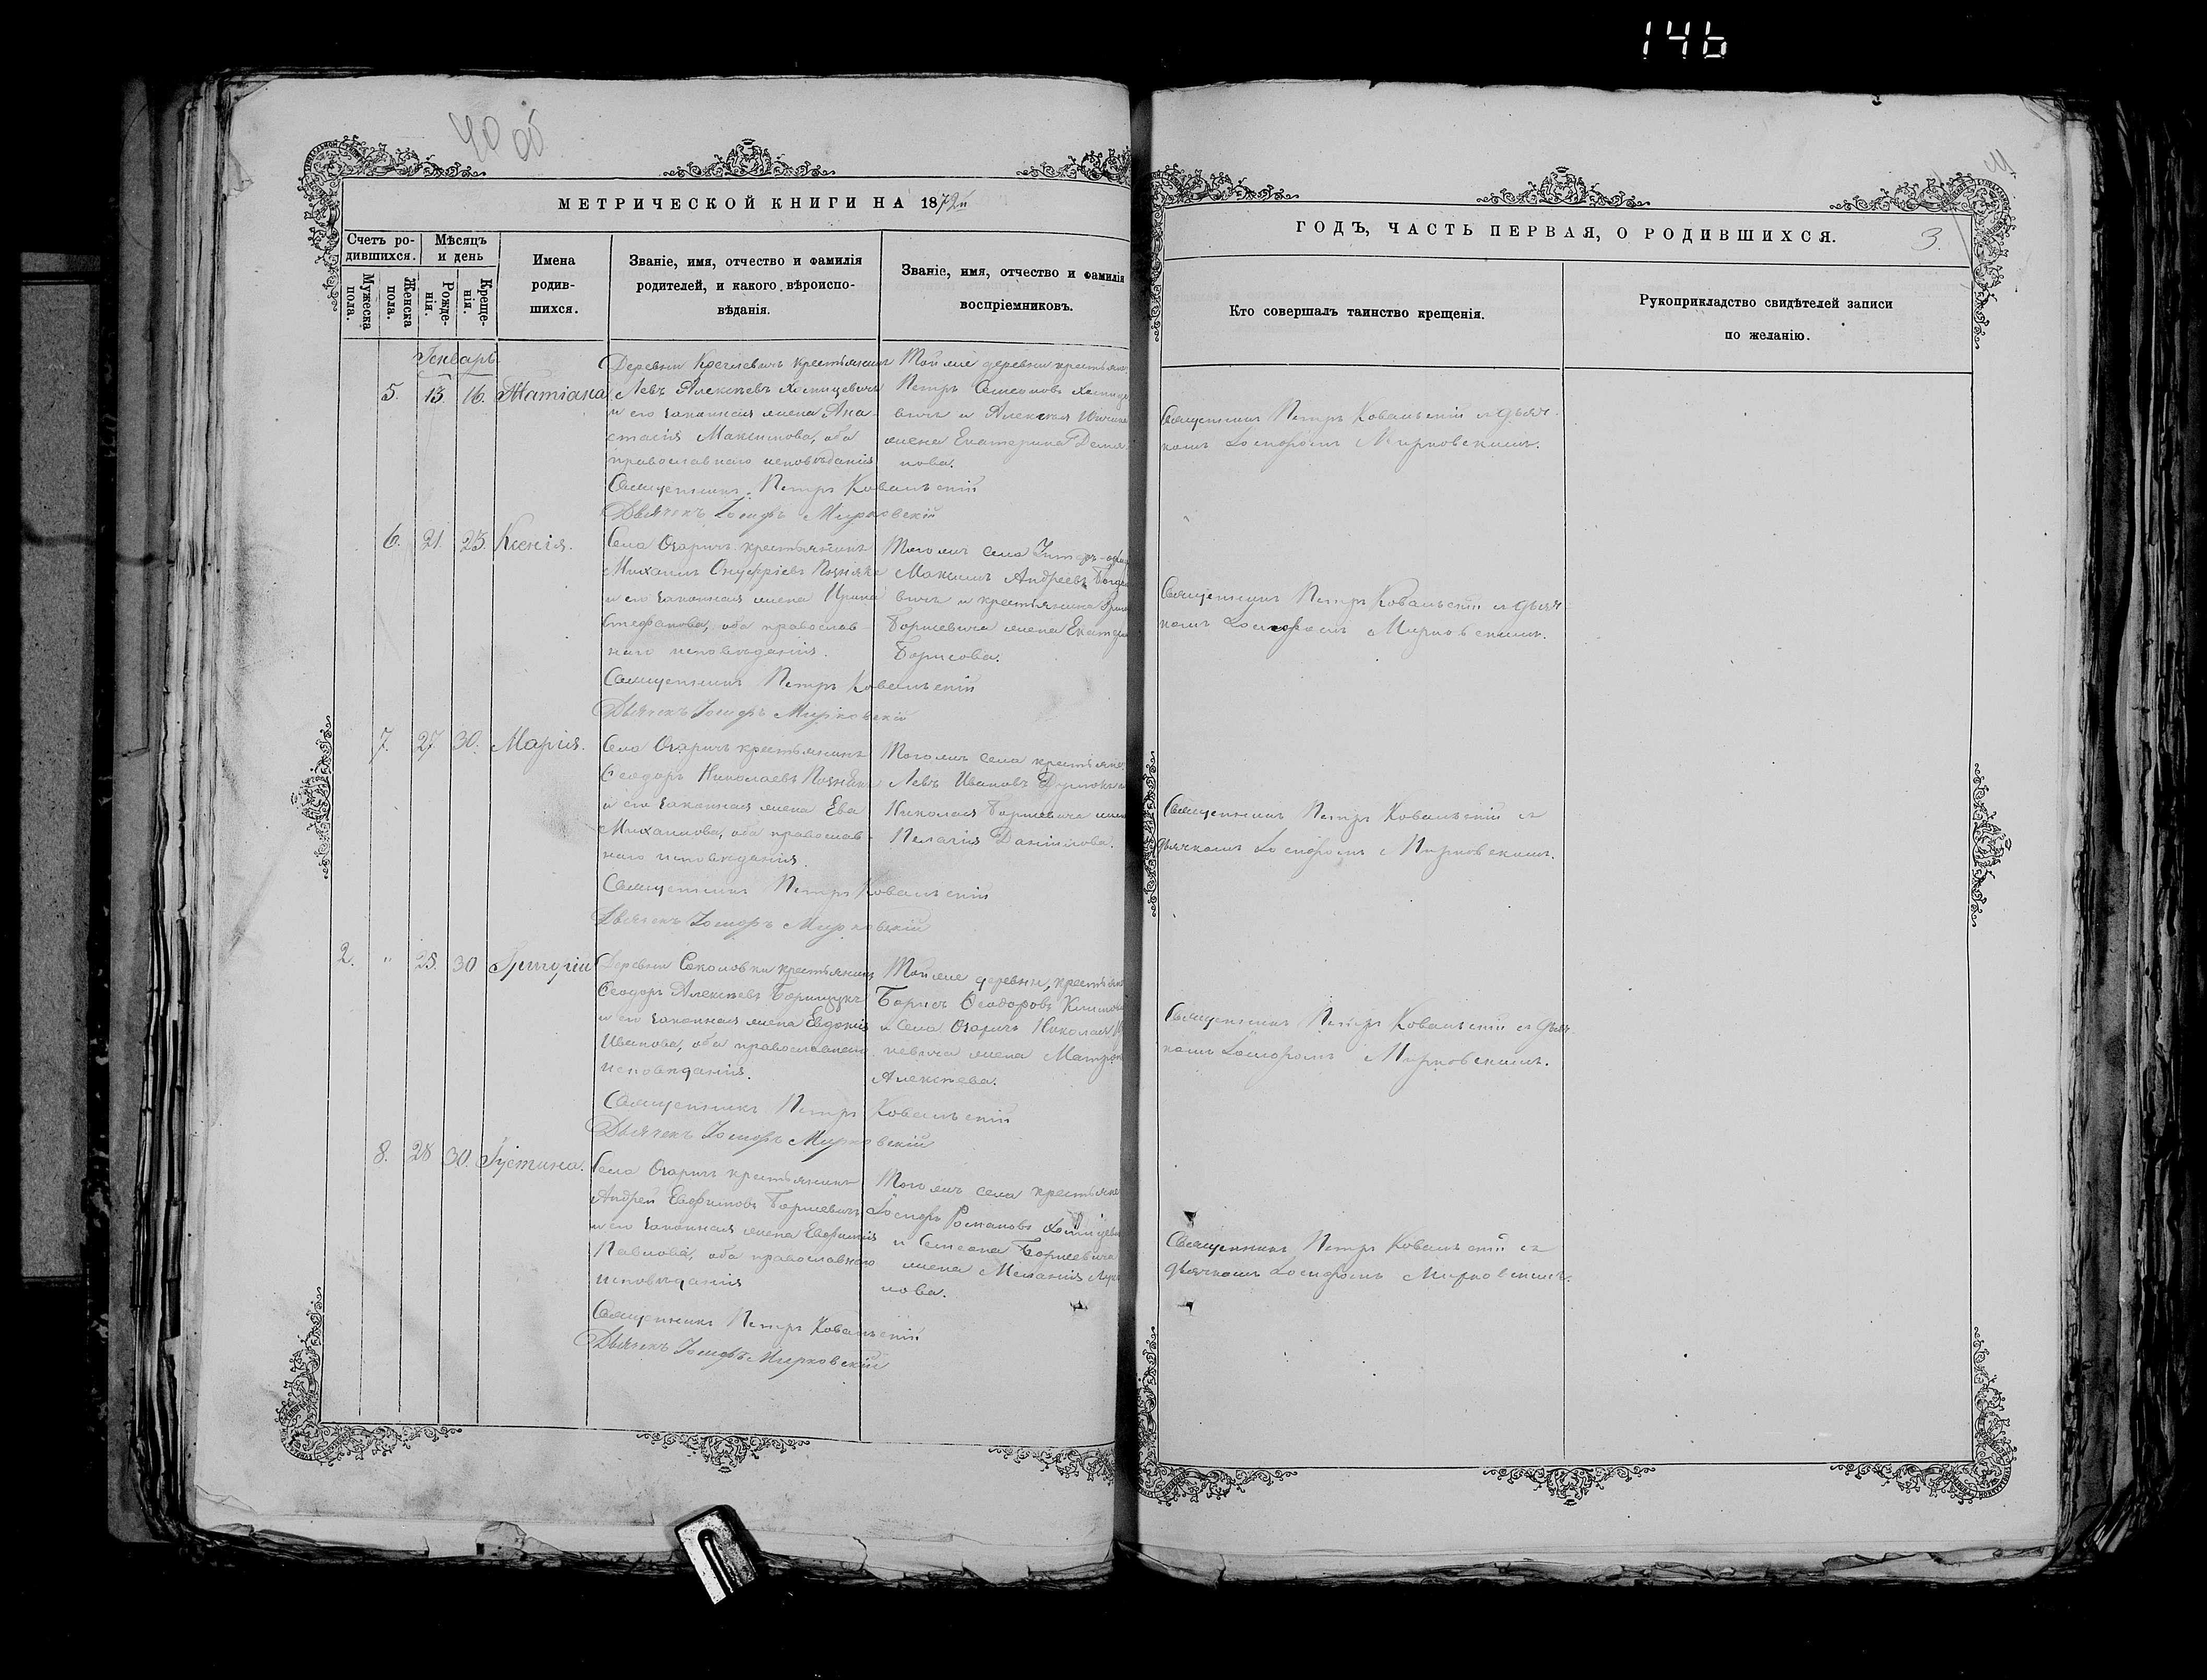 146
40 об
МЕТРИЧЕСКОЙ КНИГИ НА 1872й
ГОДЪ, ЧАСТЬ ПЕРВАЯ, О РОДИВШИХСЯ.
3.
Счетъ ро-
дившихся.
Мужеска
пола.
Женска
пола.
Мѣсяцъ
и день
Рожде-
нія.
Креще-
нія.
Имена
родив-
шихся.
Званіе, имя, отчество и фамилія
родителей, и какого вѣроиспо-
вѣданія.
Званіе, имя, отчество и фамилія
воспріемниковъ.
Кто совершалъ таинство крещенія.
Рукоприкладство свидѣтелей записи
по желанію.
Генварь
5. 13. 16. Татіана
Деревни крестьянинъ
Левъ Алексѣевъ Хомицевичъ
и его законная жена Ана-
стасія Максимова, оба
православнаго исповѣданія
Священникъ Петръ Ковальскій
Дьячекъ Іосифъ Мирковскій
Той же деревни крестьян
Петръ Семеонов Хомице
вичъ и Алексѣя
жена Екатерина Демя
нова.
Священникъ Петръ Ковальскій съ дьяч-
комъ Іосифомъ Мирковскимъ.
6. 21. 23. Ксенія.
Села Озаричъ крестьянинъ
Михаилъ Онуфріевъ Познякъ
и его законная жена Ирина
Стефанова, оба православ
наго исповѣданія.
Священникъ Петръ Ковальскій
Дьячекъ Іосифъ Мирковскій
Того же села
Максимъ Андреевъ Богда
вичъ и крестьянина
Борисевича жена Екатер
Борисова.
Священникъ Петръ Ковальскій съ дьяч-
комъ Іосифомъ Мирковскимъ.
7. 27 30. Марія.
Села Озаричъ крестьянинъ
Ѳеодоръ Николаевъ Познякъ
и его законная жена Ева
Михаилова, оба православ-
наго исповѣданія.
Священникъ Петръ Ковальскій
Дьячекъ Іосифъ Мирковскій
Того же села крестьяне
Левъ Ивановъ
Николая Борисевича жен
Пелагія Даніилова.
Священникъ Петръ Ковальскій съ
дьячкомъ Іосифомъ Мирковскимъ.
2. " 25. 30 Григорій
Деревни Соколовки крестьянинъ
Ѳеодоръ Алексѣевъ Борищукъ
и его законная жена Евдокія
Иванова, оба православнаго
исповѣданія.
Священникъ Петръ Ковальскій
Дьячекъ Іосифъ Мирковскій
Той же деревни, крестьян
Борисъ Ѳеодоровъ
и Села Озаричъ Николая
невича жена Матрона
Алексѣева.
Священникъ Петръ Ковальскій съ дьяч-
комъ Іосифомъ Мирковскимъ.
8. 28 30. Іустина.
Села Озаричъ крестьянинъ
Андрей Евфимовъ Борисевичъ
и его законная жена Евфимія
Павлова, оба православнаго
исповѣданія
Священникъ Петръ Ковальскій
Дьячекъ Іосифъ Мирковскій
Того же села крестьяне
Іосифъ Романовъ Хомицеви
и Семеона Борисевича
жена Меланія Лук
нова.
Священникъ Петръ Ковальскій съ
дьячкомъ Іосифомъ Мирковскимъ.